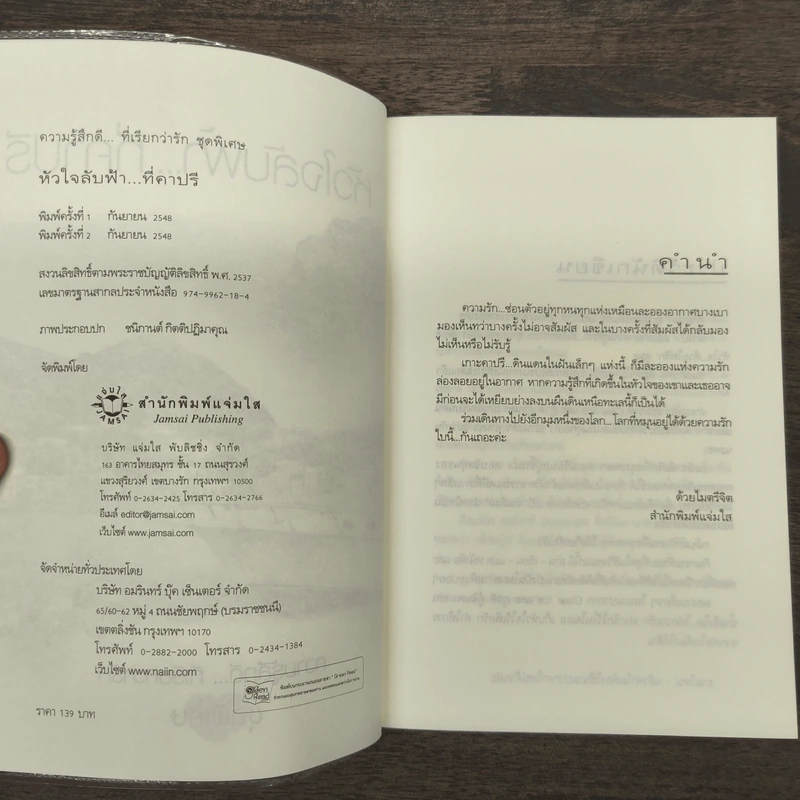 ความรู้สึกดี... ที่เรียกว่ารัก ชุดพิเศษ
หัวใจลับฟ้า...ที่คาปรี
พิมพ์ครั้งที่ 1 กันยายน 2548
พิมพ์ครั้งที่ 2 กันยายน 2548
สงวนลิขสิทธิ์ตามพระราชบัญญัติลิขสิทธิ์ พ.ศ. 2537
เลขมาตรฐานสากลประจำหนังสือ 974-9962-18-4
ภาพประกอบปก ชนิกานต์ กิตติปฏิมาคุณ
จัดพิมพ์โดย
สำนักพิมพ์แจ่มใส
Jamsai Publishing
บริษัท แจ่มใส พับลิชชิ่ง จำกัด
163 อาคารไทยสมุทร ชั้น 17 ถนนสุรวงศ์
แขวงสุริยวงศ์ เขตบางรัก กรุงเทพฯ 10500
โทรศัพท์ 0-2634-2425 โทรสาร 0-2634-2766
อีเมล์ editor@jamsai.com
เว็บไซต์ www.jamsai.com
จัดจำหน่ายทั่วประเทศโดย
บริษัท อมรินทร์ บุ๊ค เซ็นเตอร์ จำกัด
65/60-62 หมู่ 4 ถนนชัยพฤกษ์ (บรมราชชนนี)
เขตตลิ่งชัน กรุงเทพฯ 10170
โทรศัพท์ 0-2882-2000 โทรสาร 0-2434-1384
เว็บไซต์ www.naiin.com
Green Read
ราคา 139 บาท
คำนำ
ความรัก...ซ่อนตัวอยู่ทุกหนทุกแห่งเหมือนละอองอากาศบางเบา
มองเห็นทว่าบางครั้งไม่อาจสัมผัส และในบางครั้งที่สัมผัสได้กลับมอง
ไม่เห็นหรือไม่รับรู้
เกาะคาปรี...ดินแดนในฝันเล็กๆ แห่งนี้ ก็มีละอองแห่งความรัก
ล่องลอยอยู่ในอากาศ หากความรู้สึกที่เกิดขึ้นในหัวใจของเขาและเธออาจ
มีก่อนจะได้เหยียบย่างลงบนผืนดินเหนือทะเลนี้ก็เป็นได้
ร่วมเดินทางไปยังอีกมุมหนึ่งของโลก...โลกที่หมุนอยู่ได้ด้วยความรัก
ใบนี้...กันเถอะค่ะ
ด้วยไมตรีจิต
สำนักพิมพ์แจ่มใส